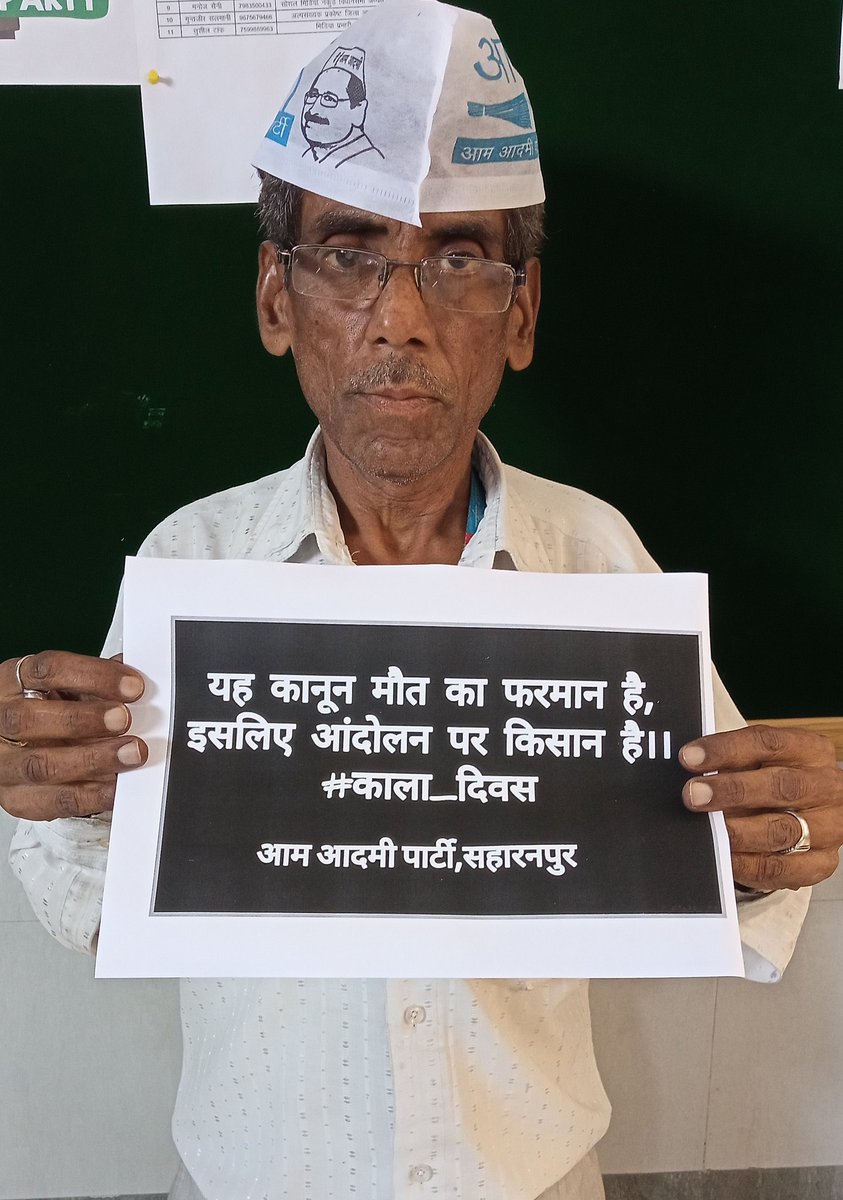 PARTY
9 मनोज सैनी 7983500433
10 मुन्तजीर सलमानी 9675679466
11 सुशील टांक 7599869963
आम आदमी
र्टी
आ
आम आदमी
यह कानून मौत का फरमान है,
इसलिए आंदोलन पर किसान है।।
#काला_दिवस
आम आदमी पार्टी,सहारनपुर